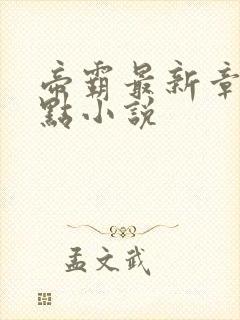 帝霸最新章
點小說
孟文武